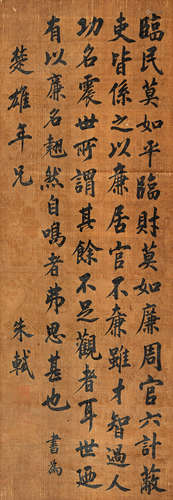 臨民莫如平臨財莫如廉周官六計蔽
吏皆係之以廉居官不廉雖才智過人
功名震世所謂其餘不足觀者耳世廼
有以廉名翹然自鳴者弗思甚也 書為
楚雄年兄 朱軾